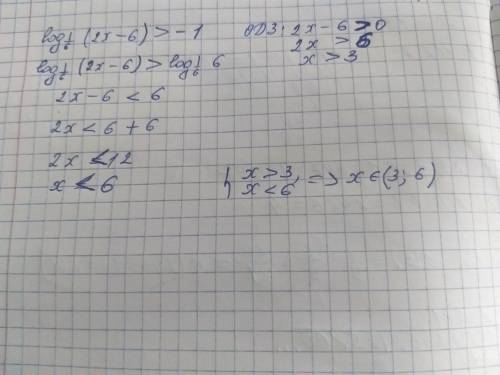 log_{1/6} (2x-6) > -1
ОДЗ: 2x - 6 > 0
2x > 6
x > 3
log_{1/6} (2x-6) > log_{1/6} 6
2x - 6 < 6
2x < 6 + 6
2x < 12
x < 6
{ x > 3,
x < 6 => x ∈ (3; 6)